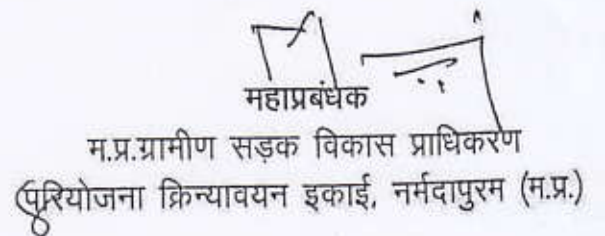 महाप्रबंधक
म.प्र.ग्रामीण सड़क विकास प्राधिकरण
परियोजना क्रिन्यावयन इकाई, नर्मदापुरम (म.प्र.)